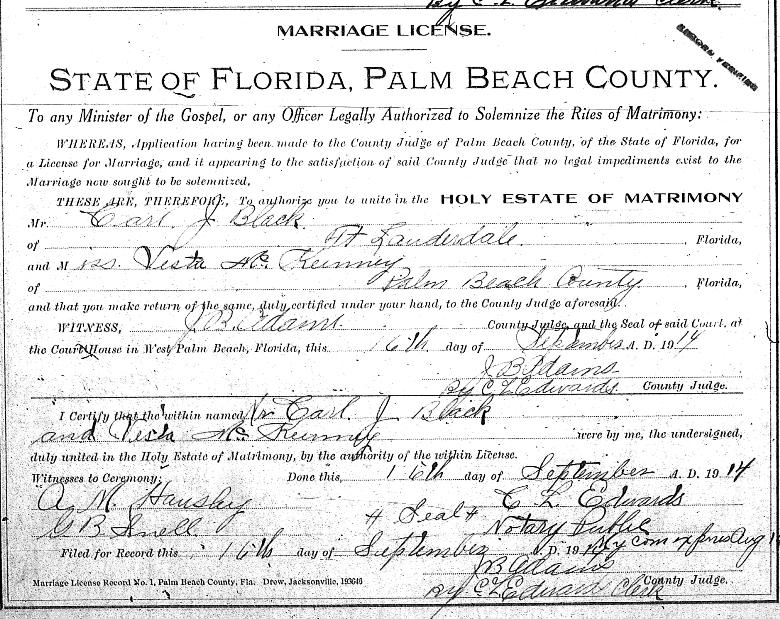 By C. L. Edwards Clerk.
MARRIAGE LICENSE.
STATE OF FLORIDA, PALM BEACH COUNTY.
To any Minister of the Gospel, or any Officer Legally Authorized to Solemnize the Rites of Matrimony:
WHEREAS, Application having been made to the County Judge of Palm Beach County, of the State of Florida, for
a License for Marriage, and it appearing to the satisfaction of said County Judge that no legal impediments exist to the
Marriage now sought to be solemnized,
THESE ARE, THEREFORE, To authorize you to unite in the HOLY ESTATE OF MATRIMONY
Mr. Carl J Black
of Ft Lauderdale. , Florida,
and Miss. Vesta Mc Kinney
of Palm Beach County , Florida,
and that you make return of the same, duly certified under your hand, to the County Judge aforesaid.
WITNESS, J B. Adams. County Judge, and the Seal of said Court, at
the Court House in West Palm Beach, Florida, this 16th day of September A. D. 1914
J B Adams
By C L Edwards County Judge.
I Certify that the within named Mr Carl J Black
and Vesta Mc Kinney were by me, the undersigned,
duly united in the Holy Estate of Matrimony, by the authority of the within License.
Witnesses to Ceremony: Done this, 16th day of September A. D. 1914
M. C. L. Edwards
G B Snell # Seal # Notary Public
Filed for Record this 16th day of September A. D. 19 My com expires Aug
J B Adams
County Judge.
Marriage License Record No. 1, Palm Beach County, Fla. Drew, Jacksonville, 193646
By C L Edward Clerk